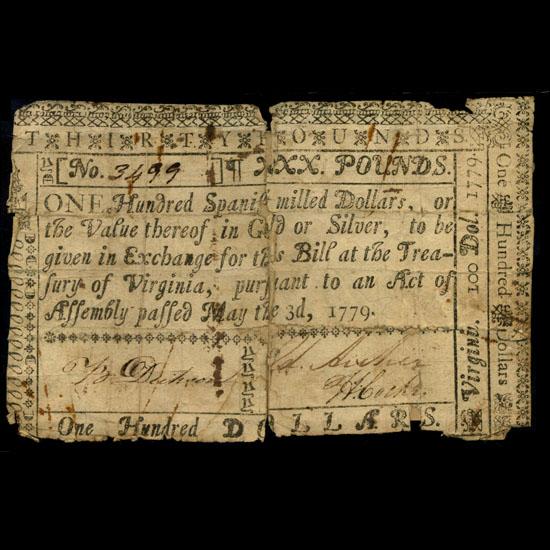 THIRTY POUNDS
[No. 3499 ]¶ XXX. POUNDS.
ONE Hundred Spanish milled Dollars, or
the Value thereof in Gold or Silver, to be
given in Exchange for this Bill at the Trea-
sury of Virginia, pursuant to an Act of
Assembly passed May the 3d, 1779.
One Hundred DOLLARS.
Virginia. 100 Dol. 1779
One Hundred Dollars